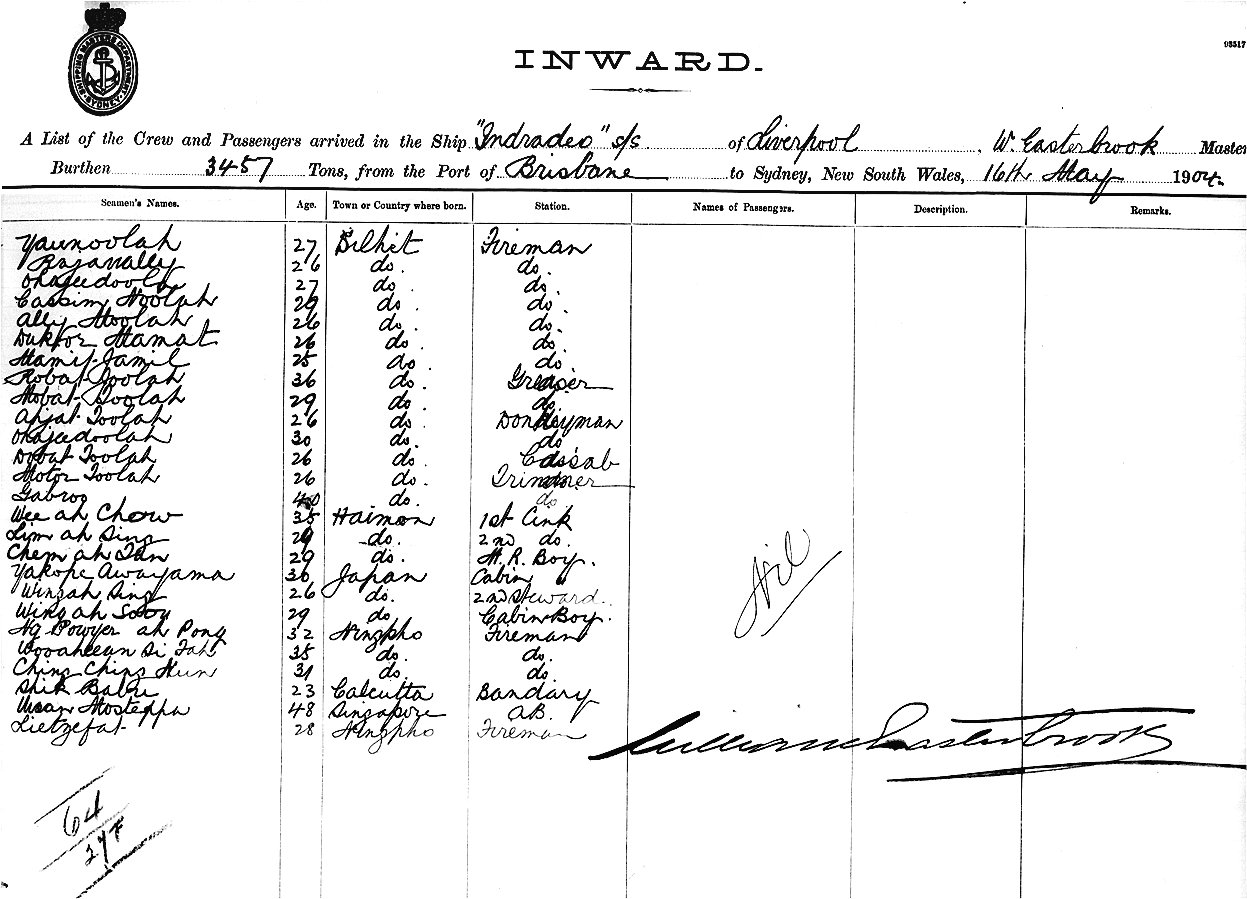 SHIPPING MASTERS DEPARTMENT SYDNEY
93517
INWARD.
A List of the Crew and Passengers arrived in the Ship "Indradeo" s/s of Liverpool, W. Easterbrook Master
Burthen 3457 Tons, from the Port of Brisbane to Sydney, New South Wales, 16th May 1904.
Seamen's Names. Age. Town or Country where born. Station. Names of Passengers. Description. Remarks.
Yaunoolah 27 Fireman
26 do. do.
27 do. do.
Cassim Moolah 29 do. do.
Ally Moolah 26 do. do.
Mamat 26 do. do.
Jamil 25 do. do.
Robat Toolah 36 do. Greaser
29 do. do.
Toolah 26 do. Donkeyman
30 do. do
Dobat Toolah 26 do. Cassab
Motor Toolah 26 do. Trimmer
40 do. do
Wee ah Chow 35 1st
Lim ah Sing 29 do. 2nd do.
Chem ah Tan 29 do. M. R. Boy.
Awayama 30 Japan Cabin "
Wingah Sing 26 do. 2nd Steward.
Wing ah 29 do Cabin Boy.
ah Pong 32 Ningpho Fireman
35 do. do.
Ching Ching 31 do. do.
Shik 23 Calcutta Bandary
Mosteppa 48 Singapore A.B.
Lietzefat 28 Ningpho Fireman
Nil
William Easterbrook
64